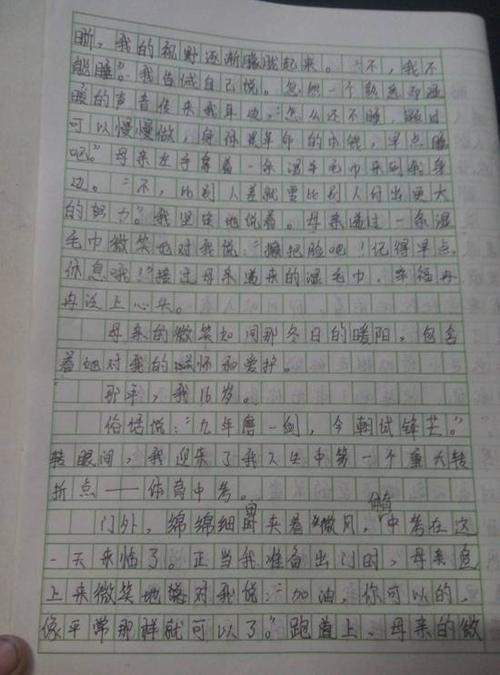 晰，我的视野逐渐朦胧起来。“不，我不
能睡”。我告诫自己说。忽然一个熟悉却温
暖的声音传来我耳边，“怎么还不睡，题目
可以慢慢做，身体是革命的本钱，早点睡
吧。”母亲左手拿着一条湿毛巾来到我身
边。“不，比别人差就要比别人付出更大
的努力”。我坚定地说着。母亲递过一条湿
毛巾微笑地对我说：“擦把脸吧！记得早点
休息哦！”接过母亲递来的湿毛巾，幸福再
再没上心头。
母亲的微笑如同那冬日的暖阳，包含
着她对我的关怀和爱护。
那年，我16岁。
俗话说：“九年磨一剑，今朝试锋芒。”
转眼间，我迎来了我人生中第一个重大转
折点——体育中考。
门外，绵绵细雨夹着微风，体育中考在这
一天来临了。正当我准备出门时，母亲急
上来微笑地对我说：“加油，你可以的，
像平常那样就可以了。”跑道上，母亲的微